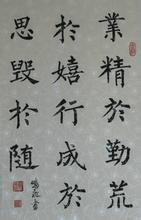 業精於勤荒
於嬉行成於
思毀於随
書